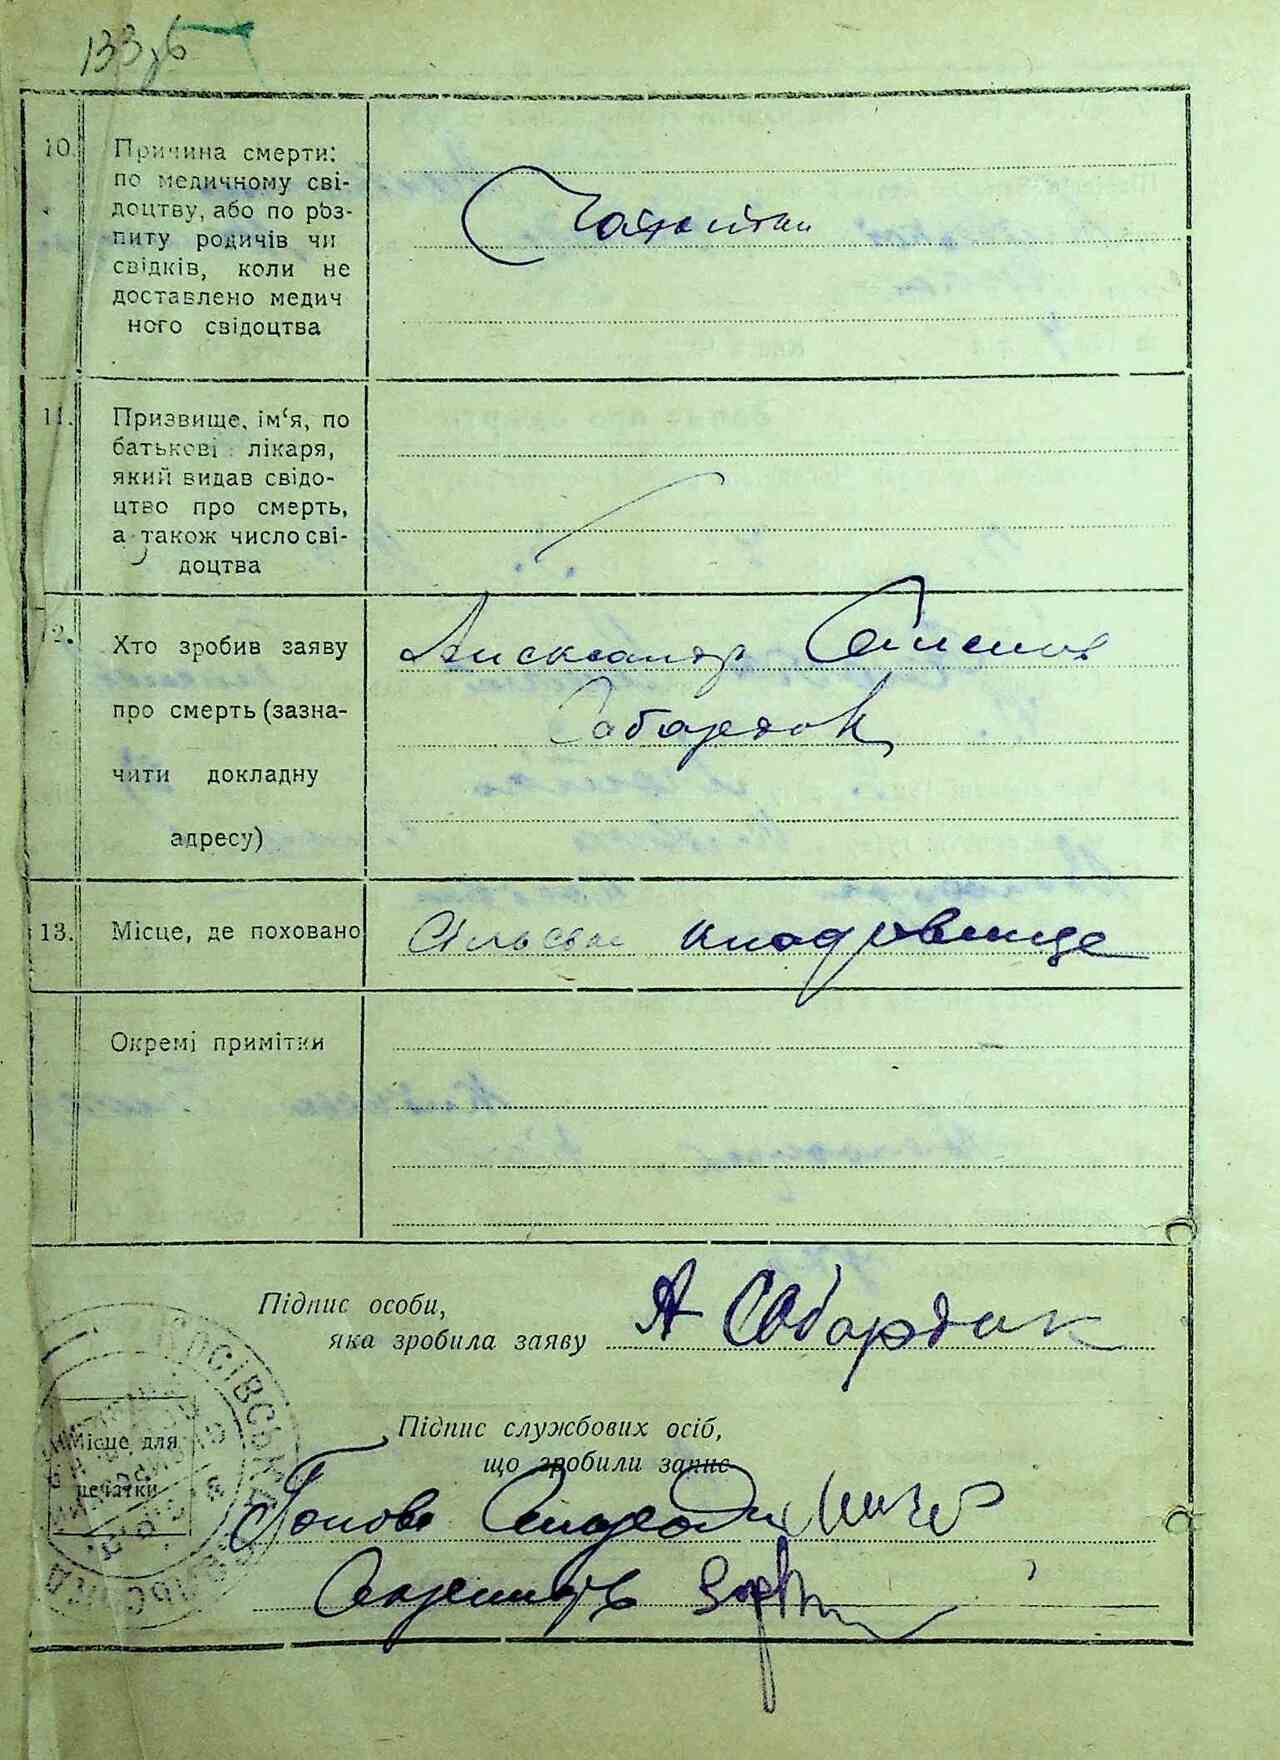 133зв
10. Причина смерти:
по медичному сві-
доцтву, або по роз-
питу родичів чи
свідків, коли не
доставлено медич
ного свідоцтва
11. Призвище, ім‘я, по
батькові лікаря,
який видав свідо-
цтво про смерть,
а також число сві-
доцтва
12. Хто зробив заяву
про смерть (зазна-
чити докладну
адресу)
Александр
Сабардак
13. Місце, де поховано
Сільське кладовище
Окремі примітки
Підпис особи,
яка зробила заяву А Сабардак
Підпис службових осіб,
що зробили запис
Місце для
печатки
Голова
Секретарь